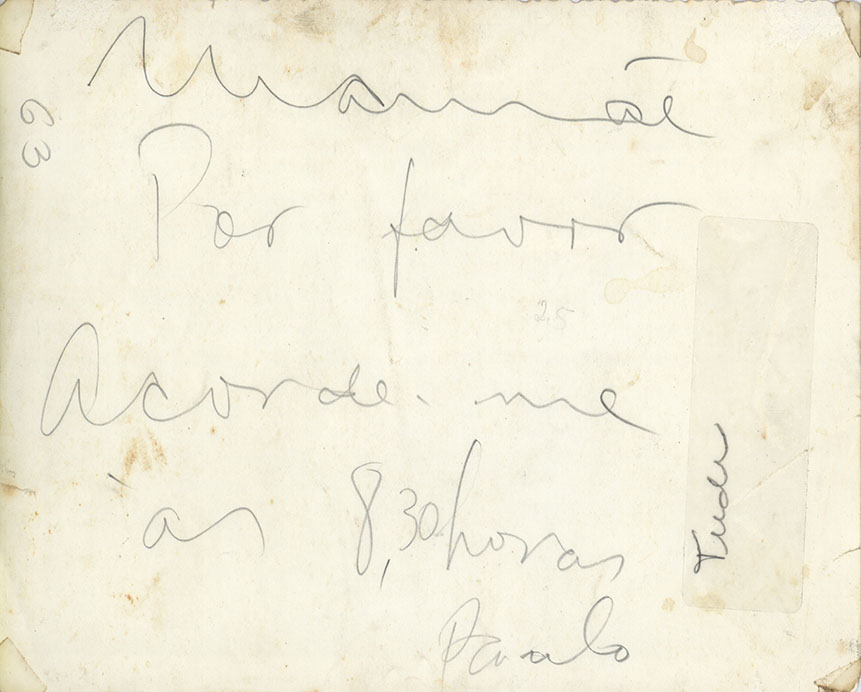 Mamãe
Por favor
Acorde-me
às 8,30 horas
Paulo
63
25